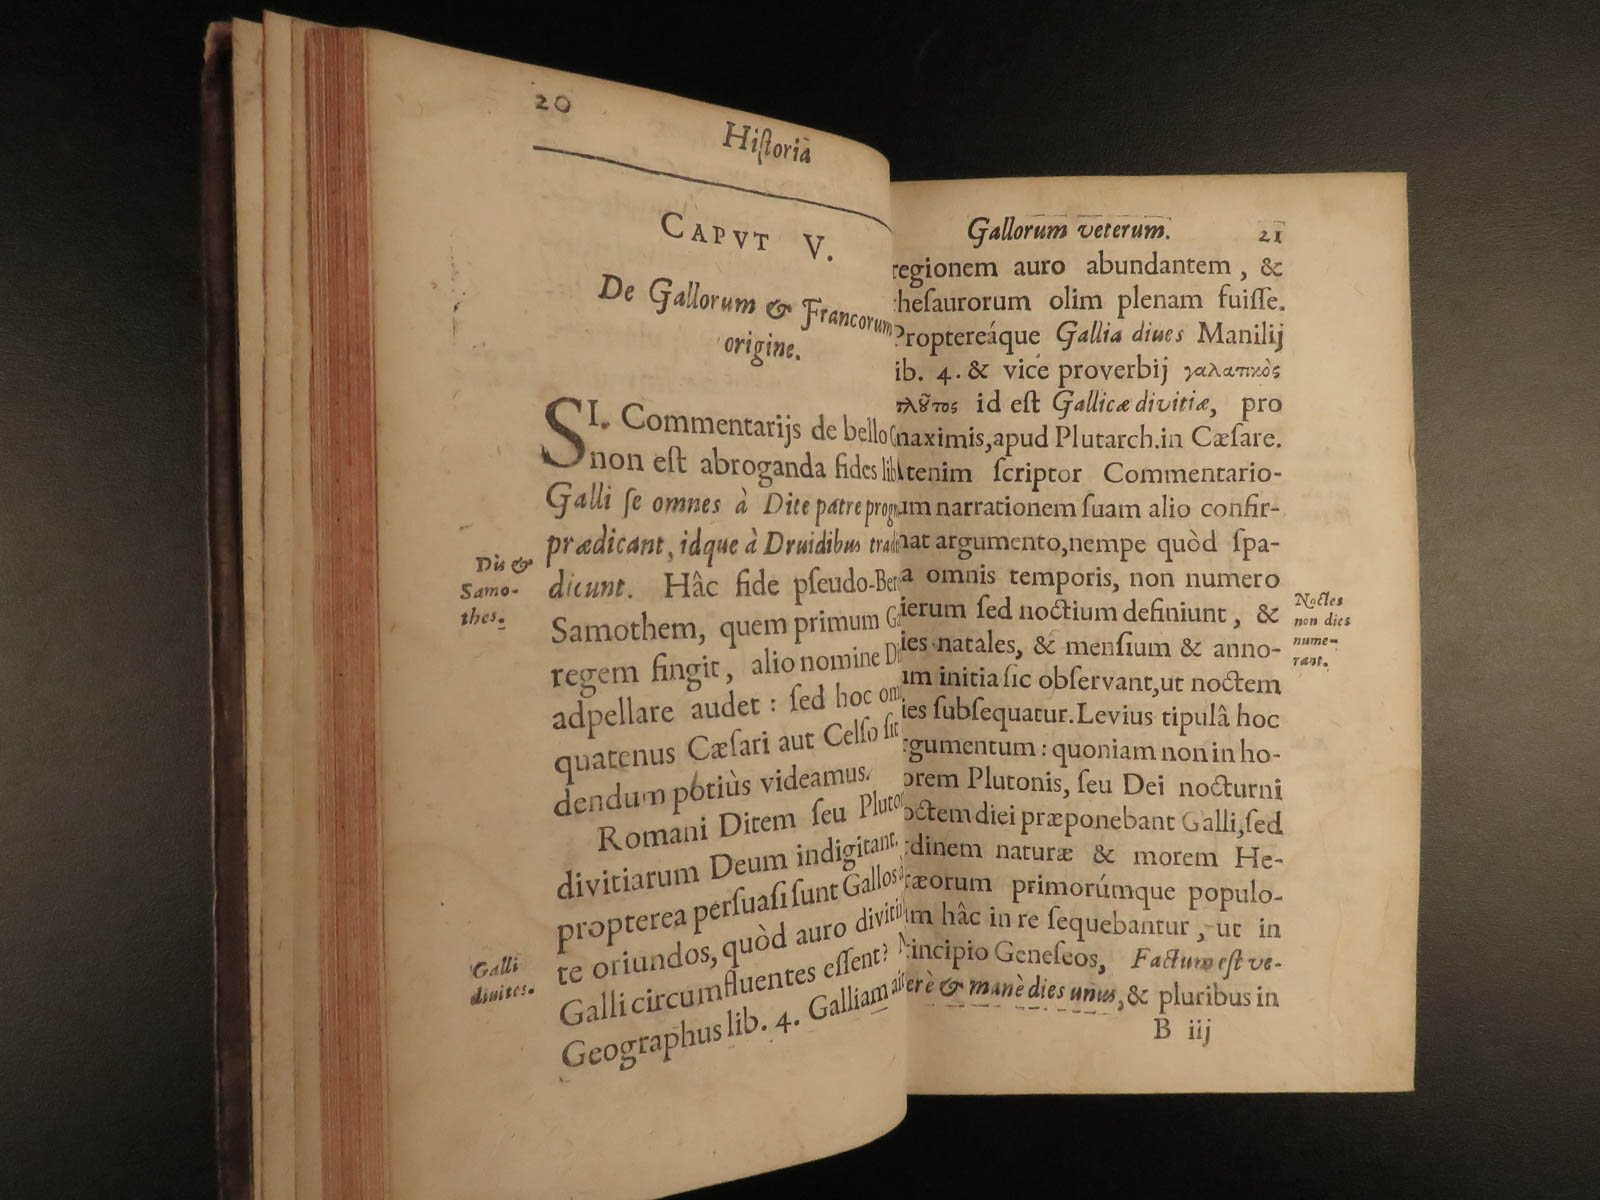 20
Hiſtoria
CAPVT V.
De Gallorum & Francorum
origine.
SI. Commentarijs de bello
non eſt abroganda fides
Galli ſe omnes à Dite patre
prædicant, idque à Druidibus
dicunt. Hâc fide pſeudo-
Samothem, quem primum
regem fingit, alio nomine
adpellare audet : ſed hoc
quatenus Cæſari aut Celſo ſit
dendum potiùs videamus.
Romani Ditem ſeu
divitiarum Deum indigitant.
propterea perſuaſi ſunt Gallos
te oriundos, quòd auro
Galli circumfluentes eſſent?
Geographus lib. 4. Galliam
Dis &
Samo-
thes.
Galli
diuites.
Gallorum veterum.
21
regionem auro abundantem, &
theſaurorum olim plenam fuiſſe.
Proptereáque Gallia diues Manilij
lib. 4. & vice proverbij γαλατικὸς
πλȣ̃τος id eſt Gallicæ divitiæ, pro
maximis, apud Plutarch. in Cæſare.
Atenim ſcriptor Commentario-
narrationem ſuam alio confir-
argumento, nempe quòd ſpa-
omnis temporis, non numero
ſed noctium definiunt, &
natales, & menſium & anno-
initia ſic obſervant, ut noctem
ſubſequatur. Levius tipulâ hoc
: quoniam non in ho-
Plutonis, ſeu Dei nocturni
diei præponebant Galli, ſed
naturæ & morem He-
primorúmque populo-
hâc in re ſequebantur, ut in
Geneſeos, Factum eſt ve-
& manè dies unus, & pluribus in
B iij
Noctes
non dies
nume-
rant.